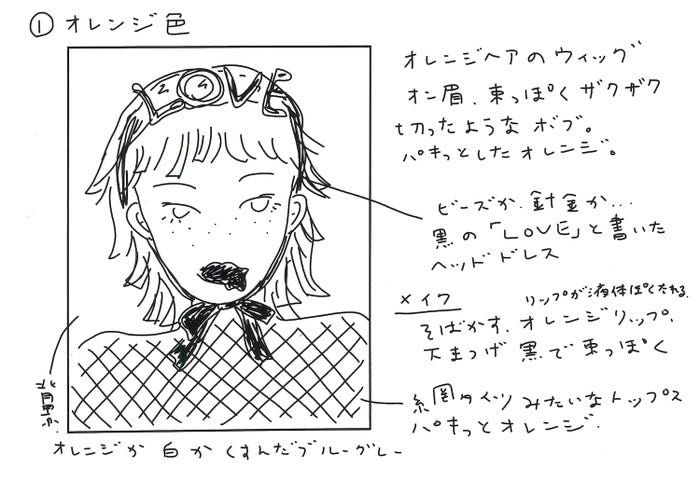 ① オレンジ色
LOVE
オレンジヘアのウィッグ
オン眉、束っぽくザクザク
切ったようなボブ。
パキっとしたオレンジ。
ビーズか、針金か...
黒の「LOVE」と書いた
ヘッドドレス
メイク
リップが液体ぽくたれる。
そばかす、オレンジリップ、
下まつげ 黒で束っぽく
網タイツみたいなトップス
パキっとオレンジ.
背景:
オレンジか 白か くすんだブルーグレー